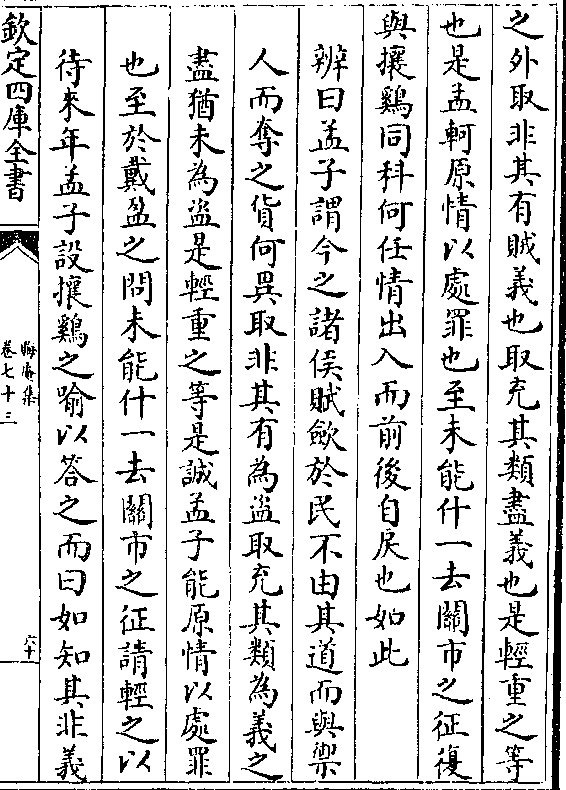 之外取非其有賊義也取充其類盡義也是輕重之等
也是孟軻原情以處罪也至未能什一去關市之征復
與攘鷄同科何任情出入而前後自戾也如此
辨曰孟子謂今之諸侯賦斂於民不由其道而與禦
人而奪之貨何異取非其有為盗取充其類為義之
盡猶未為盗是輕重之等是誠孟子能原情以處罪
也至於戴盈之問未能什一去關市之征請輕之以
待來年孟子設攘鷄之喻以答之而曰如知其非義
欽定四庫全書
晦庵集
卷七十三
六十